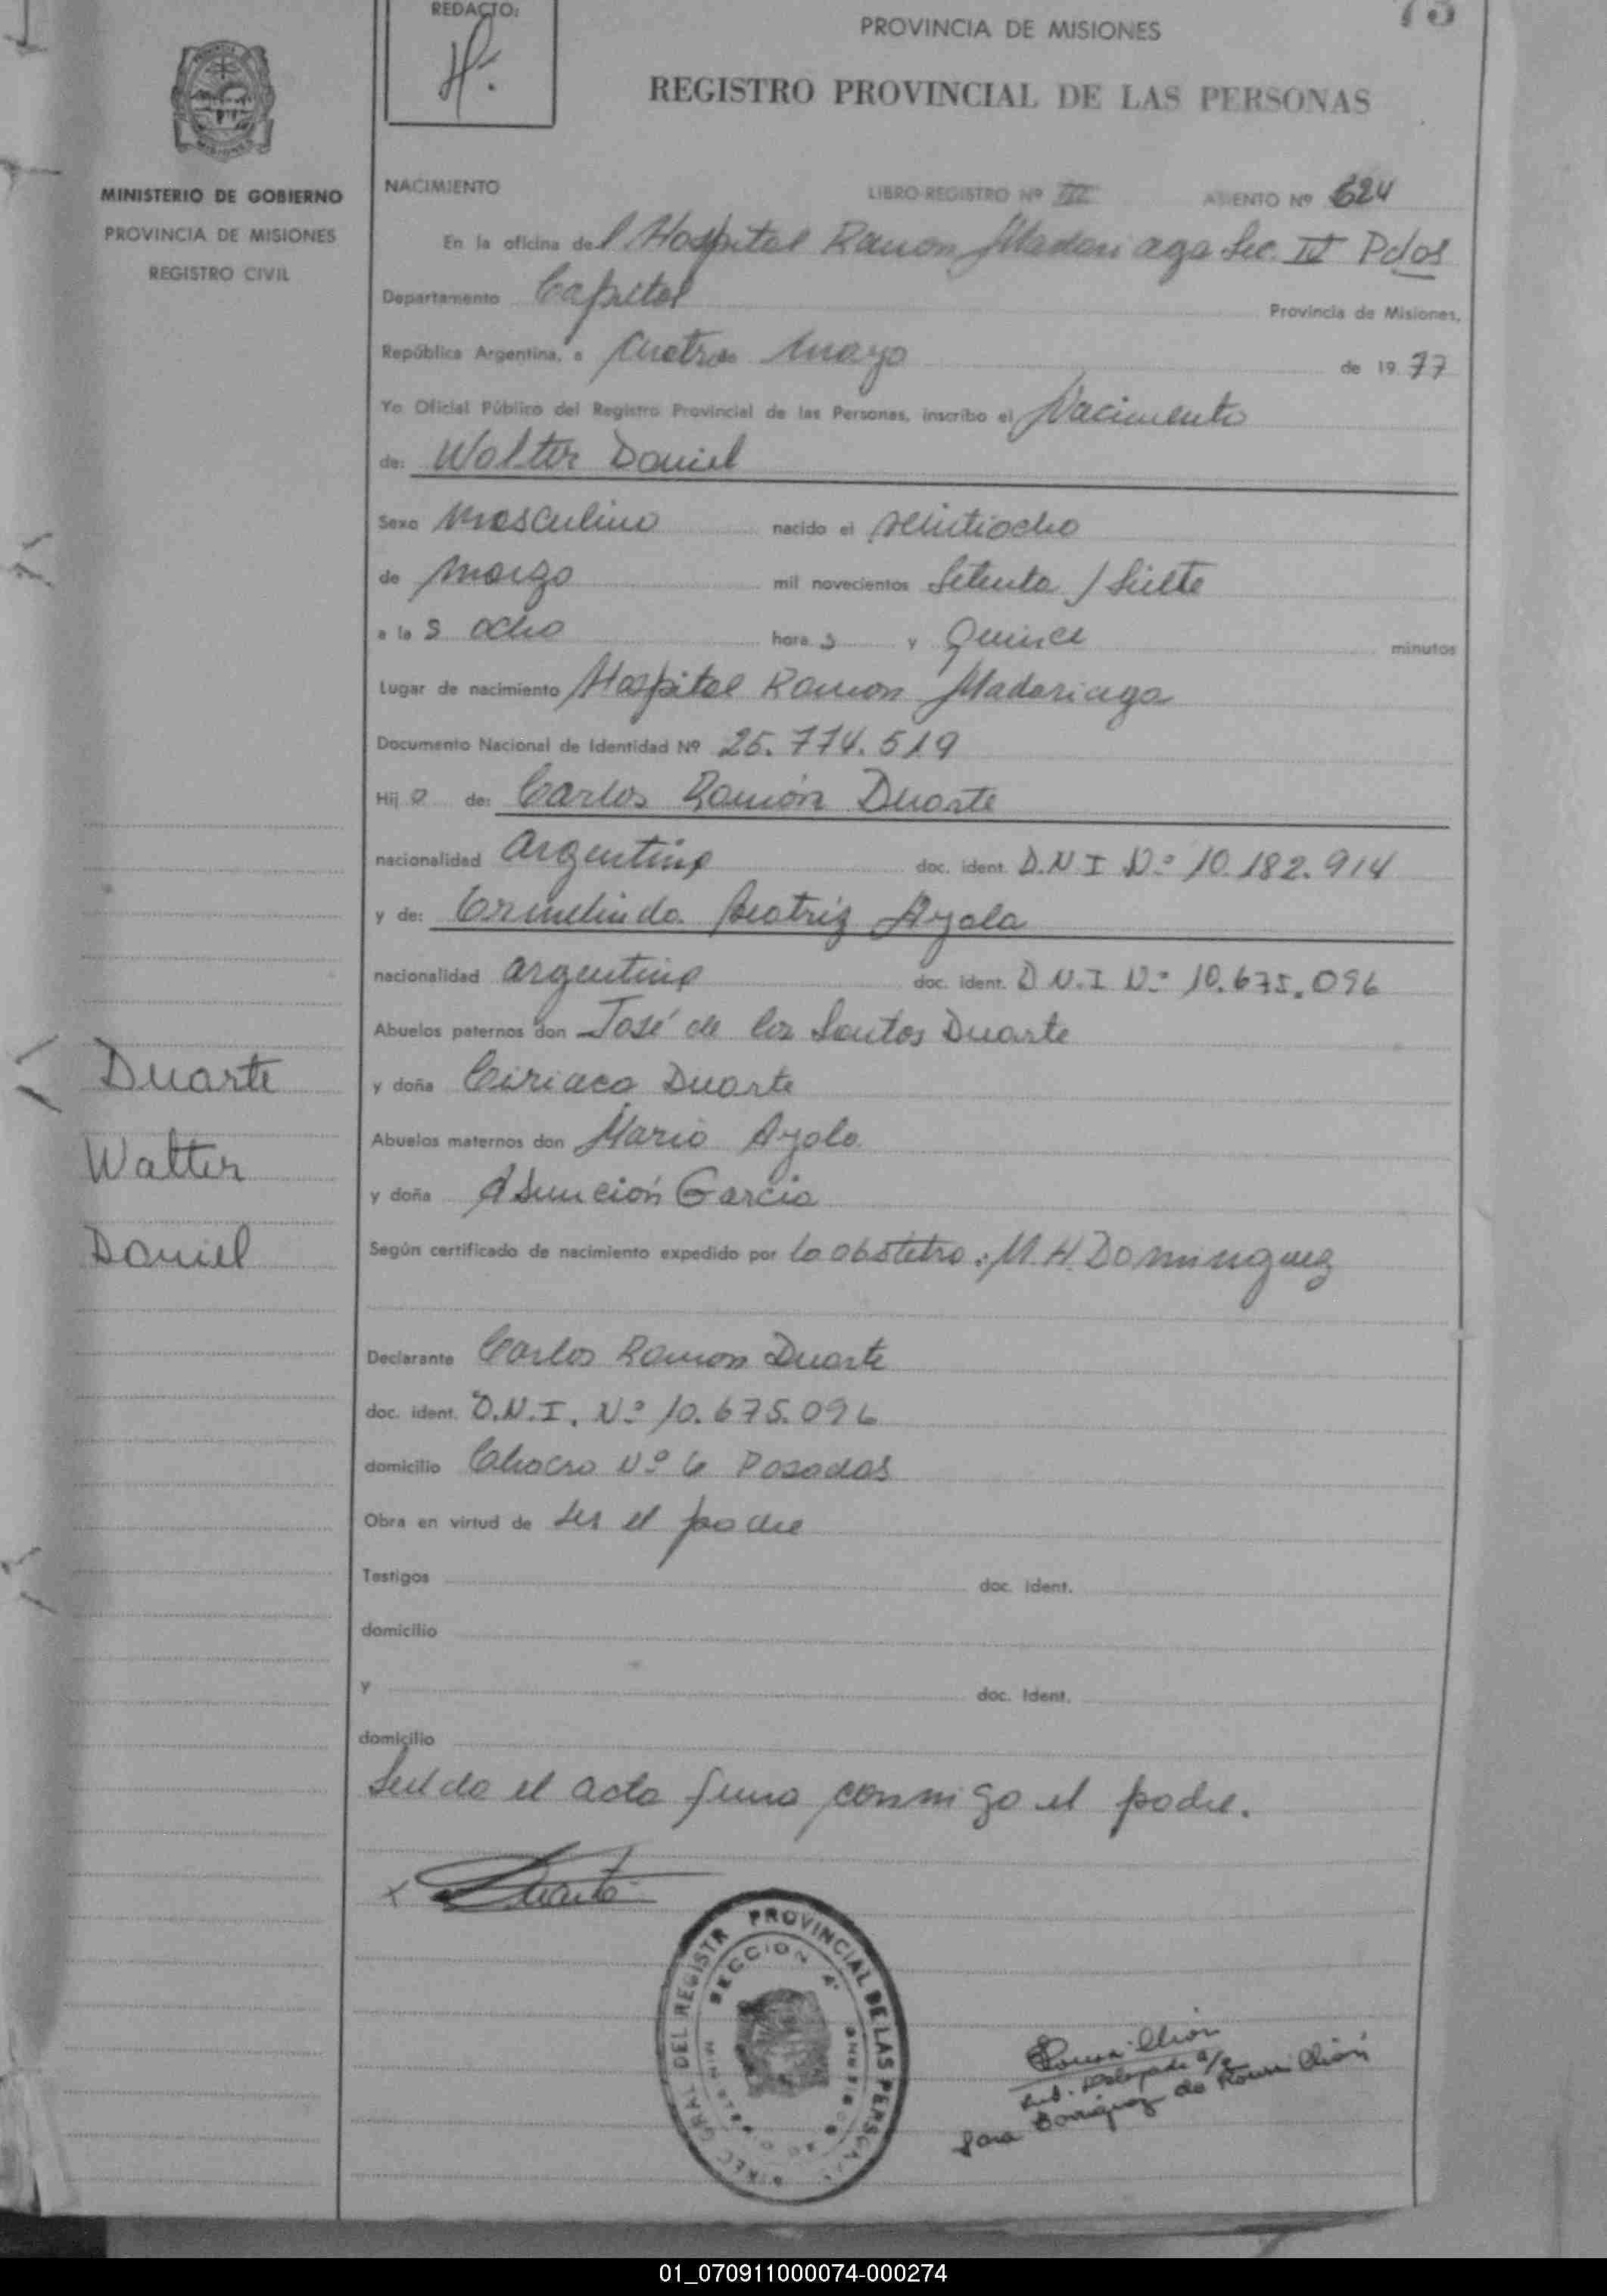 REDACTO:
75
PROVINCIA DE MISIONES
REGISTRO PROVINCIAL DE LAS PERSONAS
MINISTERIO DE GOBIERNO
PROVINCIA DE MISIONES
REGISTRO CIVIL
NACIMIENTO LIBRO-REGISTRO Nº III ASIENTO Nº 624
En la oficina del Hospital Ramon Madariaga Sec. IV Pdas
Departamento Capital Provincia de Misiones,
República Argentina, a cuatro de mayo de 1977
Yo Oficial Público del Registro Provincial de las Personas, inscribo el Nacimiento
de: Walter Daniel
Sexo masculino nacido el veintiocho
de marzo mil novecientos setenta / siete
a las ocho horas y Quince minutos
Lugar de nacimiento Hospital Ramon Madariaga
Documento Nacional de Identidad Nº 25.774.519
Hijo de: Carlos Ramón Duarte
nacionalidad argentina doc. ident. D.N I Nº 10.182.914
y de: Ermelinda Beatriz Ayala
nacionalidad argentina doc. ident. D N.I Nº 10.675.096
Abuelos paternos don José de los Santos Duarte
y doña Ciriaca Duarte
Abuelos maternos don Mario Ayala
y doña Asunción Garcia
Según certificado de nacimiento expedido por la obstetra: M.H. Dominguez
Duarte
Walter
Daniel
Declarante Carlos Ramon Duarte
doc. ident. D.N.I. Nº 10.675.096
domicilio Chacra Nº 6 Posadas
Obra en virtud de ser el padre
Testigos doc. ident.
domicilio
y doc. Ident.
domicilio
Leida el acta firma conmigo el padre.
x Duarte
DIREC. GRAL DEL REGISTR PROVINCIAL DE LAS PERSONAS
SECCION 4ª
MISIONES
Sub. Delegada a/c
Sara de Chión
01_070911000074-000274